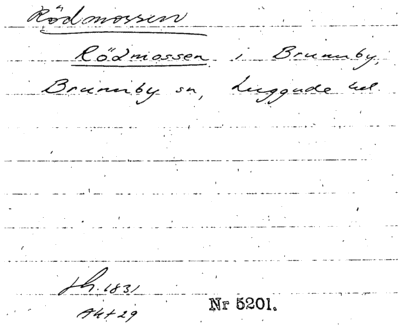 Rödmossen
Rödmossen i Brunnby,
Brunnby sn, Luggude hd.
sk. 1831
Akt 29
Nr 5201.